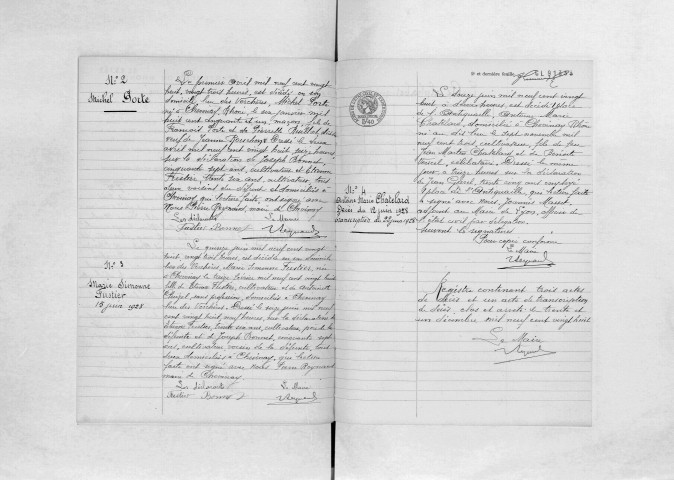 N° 2
Michel Porte
Le premier avril mil neuf cent vingt
huit, vingt trois heures, est décédé en son
domicile, lieu des Verchères, Michel Porte
né à Chevinay, Rhône, le six janvier mil
huit cent cinquante et un, maçon, fils de
François Porte et de Pierrette
veuf de Jeanne Dressé le deux
avril mil neuf cent vingt huit, heures,
sur la déclaration de Joseph Bonnet,
cinquante sept ans, cultivateur et Etienne
Fustier, trente six ans, cultivateur, tous
deux voisins du défunt et domiciliés à
Chevinay, qui lecture faite, ont signé avec
Nous Pierre Reynard, maire de Chevinay
Les déclarants Le Maire
Fustier Bonnet Reynard
N° 3
Marie Simonne
Fustier
15 juin 1928
Le quinze juin mil neuf cent vingt
huit, vingt trois heures, est décédée en son domicile
lieu des Verchères, Marie Simonne Fustier, née
à Chevinay le treize février mil neuf cent vingt huit
fille de Etienne Fustier, cultivateur et de Antoinette
son épouse, domiciliés à Chevinay
lieu des Verchères. Dressé le seize juin mil neuf
cent vingt huit, neuf heures, sur la déclaration de
Etienne Fustier, trente six ans, cultivateur, père de la
défunte et de Joseph Bonnet, cinquante sept
ans, cultivateur, voisin de la défunte, tous
deux domiciliés à Chevinay, qui lecture
faite ont signé avec Nous Pierre Reynard
maire de Chevinay
Les déclarants Le Maire
Fustier Bonnet Reynard
5e et dernière feuille
N° 4
Antoine Marie Chatelard
Décès du 12 juin 1928
transcription du 22 juin 1928
Le douze juin mil neuf cent vingt
huit, à douze heures, est décédé place
de l'Antiquaille, Antoine Marie
Chatelard, domicilié à Chevinay, Rhône
né au dit lieu le sept novembre mil
neuf cent trois, cultivateur, fils de feu
Jean Marie Chatelard et de Benoite
célibataire. Dressé le même
jour à treize heures sur la déclaration
de Jean trente cinq ans employé
place de l'Antiquaille, qui lecture faite
a signé avec nous, Joannès
adjoint au Maire de Lyon, officier de
l'état civil par délégation.
Suivent les signatures
Pour copie conforme
Le Maire
Reynard
Registre contenant trois actes
de décès et un acte de transcription
de décès, clos et arrêté le trente et
un décembre mil neuf cent vingt huit
Le Maire
Reynard